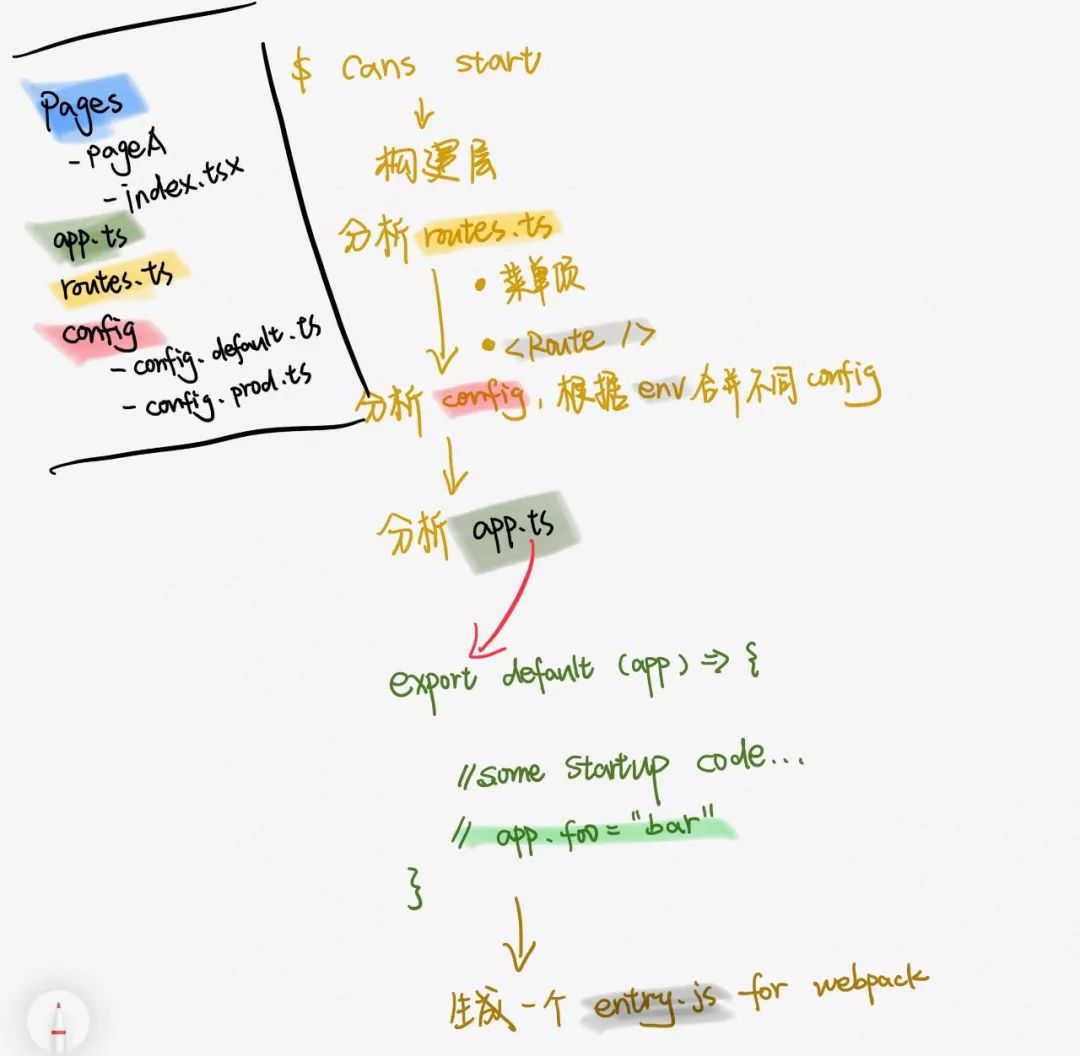 Pages
- pageA
- index.tsx
app.ts
routes.ts
config
- config.default.ts
- config.prod.ts
$ Cans start
构建层
分析 routes.ts
• 菜单项
• <Route />
分析 config, 根据 env 合并不同 config
分析 app.ts
export default (app) => {
//some startup code...
// app.foo = "bar"
}
生成一个 entry.js for webpack